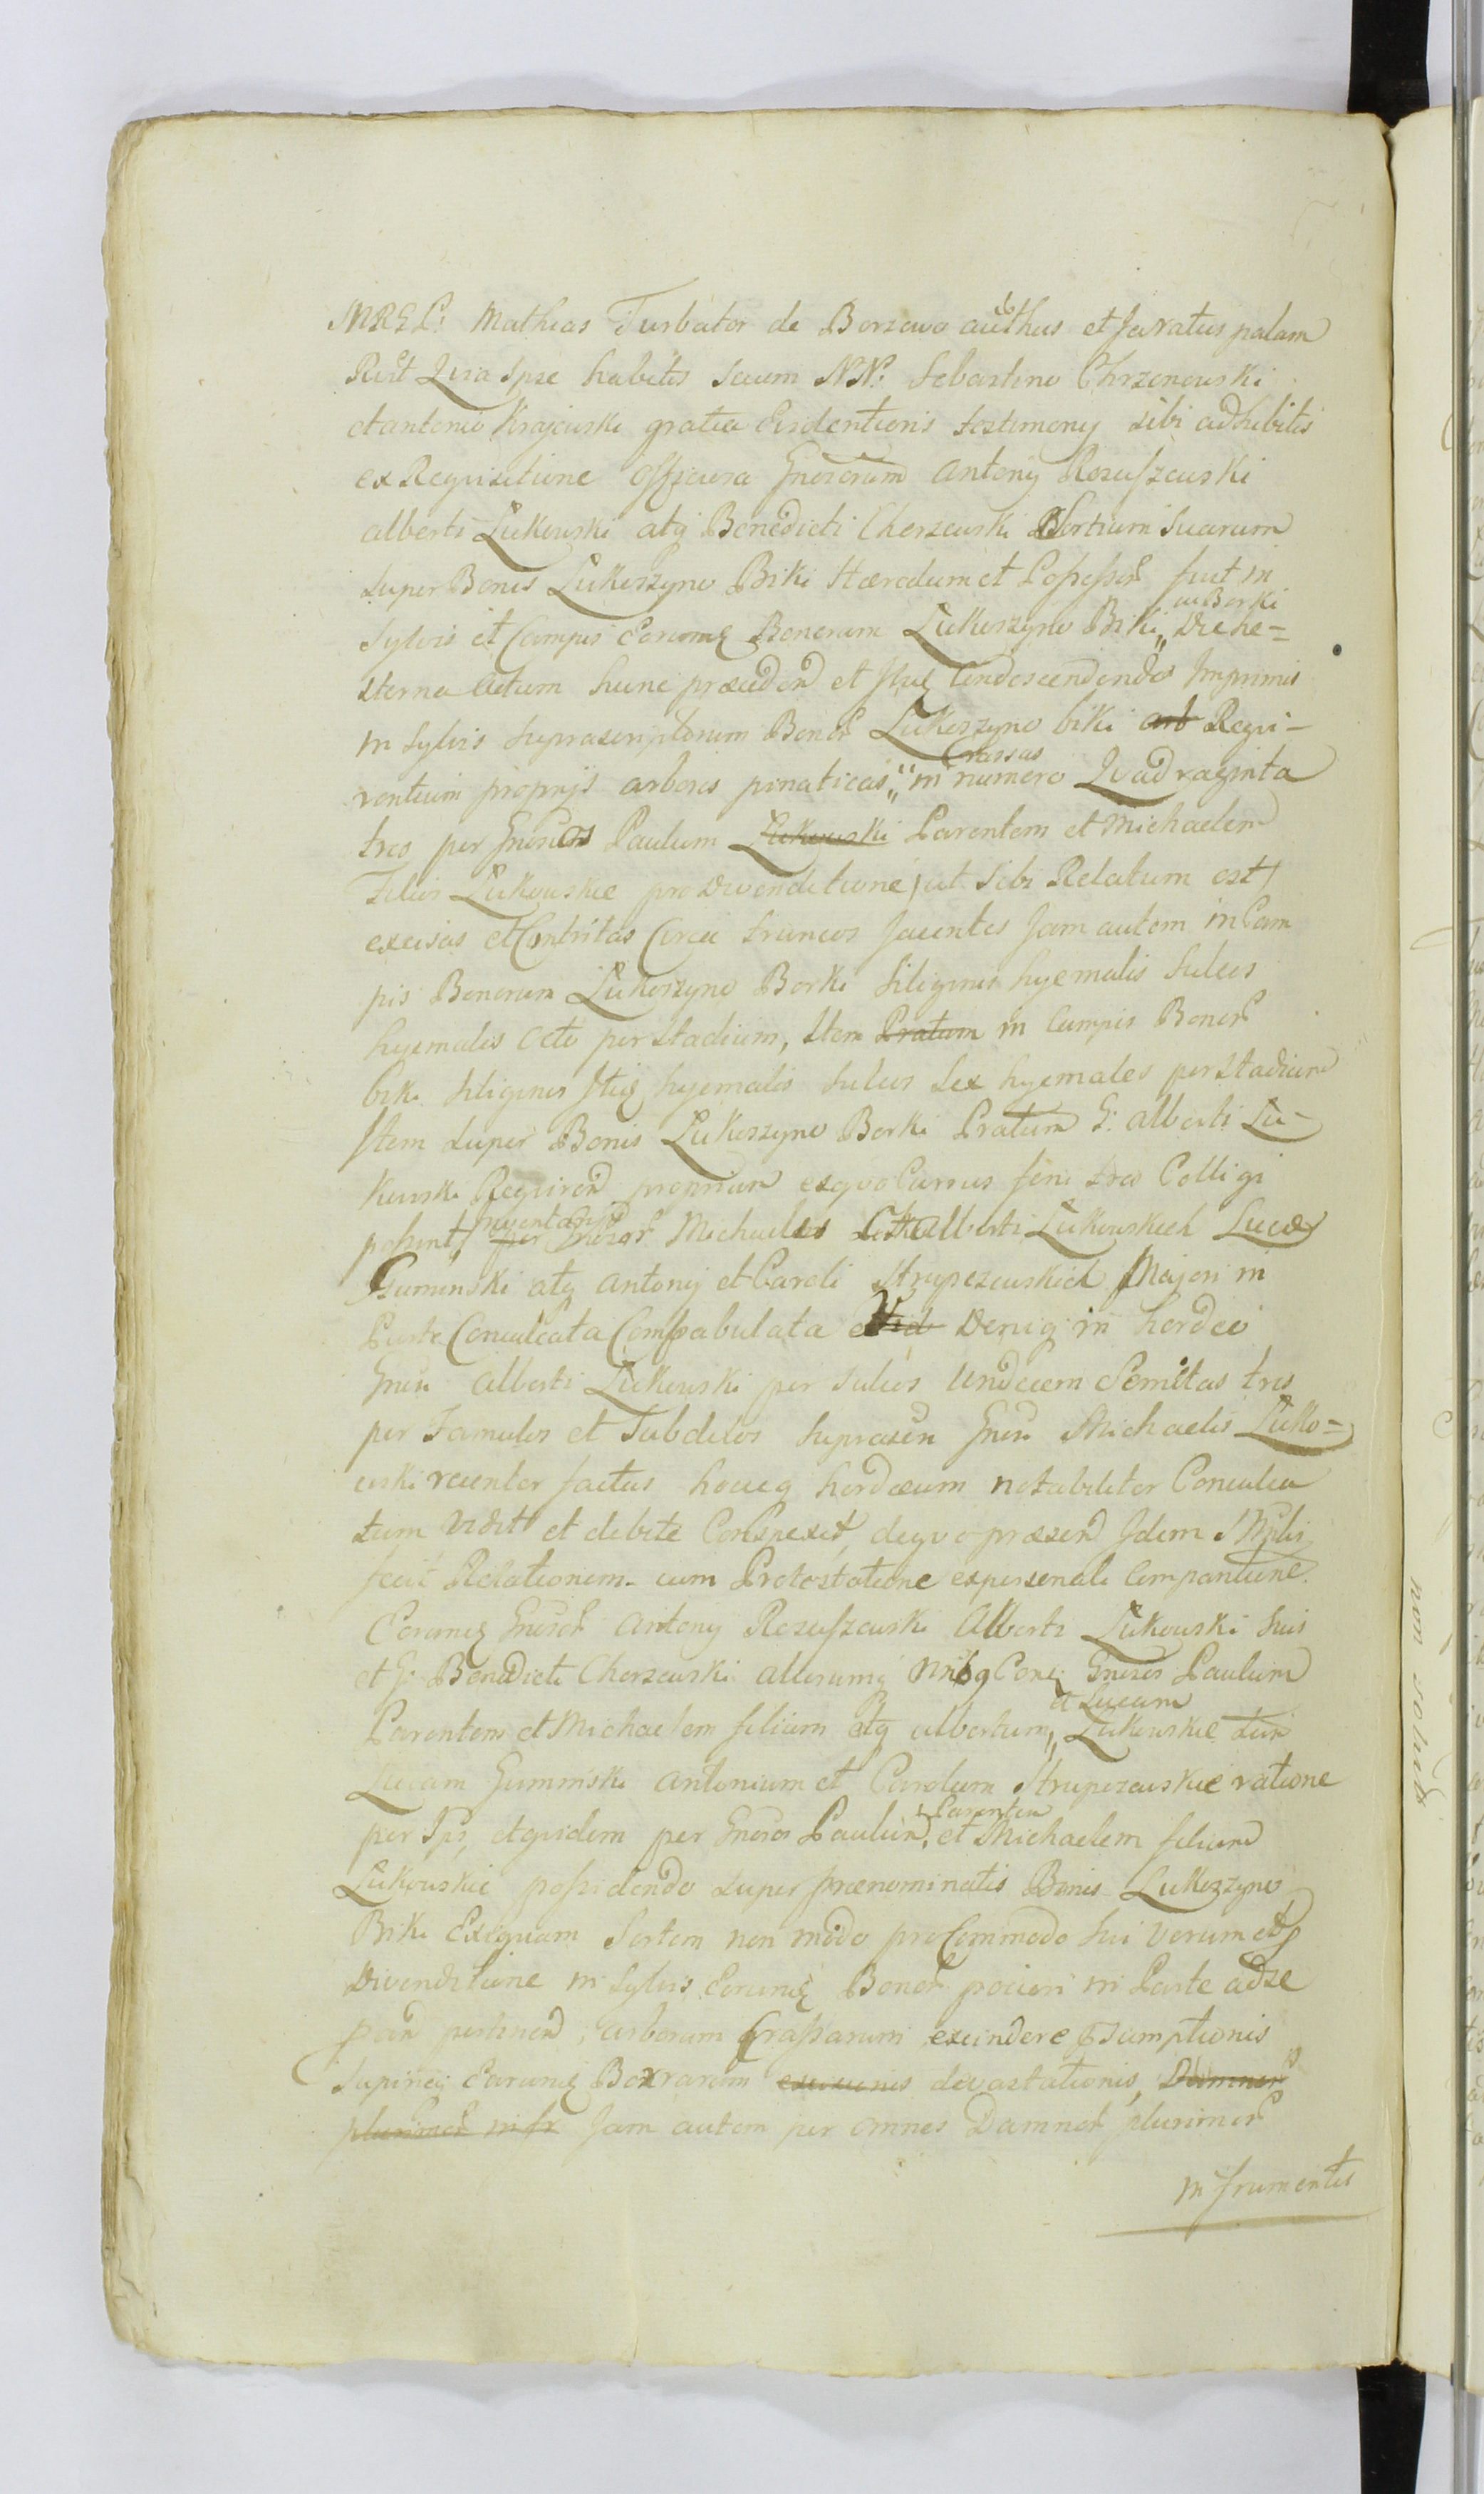 MREL: Mathias Turbator de Borzewo authus et Juratus palam
Rest Quia Ipse habitis secum NN: Sebastino Chrzonowski
et antonio Krajewski gratia Evidentioris testimony sibi adhibitis
ex Requisitione officiosa Gnosorum Antony Rozuszewski
alberti Łukowski atq Benedicti Cherzewski Sortium Suarum
super Bonis Łukoszyno Biki Hæredum et Possessor fuit in
Sylvis et Campis Eorumq Bonorum Łukoszyno Biki „ au Borki Die he=
sterna Actum hunc præceden et Ibiq Condescendendo Imprimis
in Sylvis suprascriptorum Bonor Łukoszyno biki arb Requi-
rentium proprijs arbores pinaticas „ Crassas in numero Quadraginta
tres per Gnosos Paulum Łukowski Parentem et Michaelem
Filios Łukowskie pro Divenditione /ut Sibi Relatum est/
excisas et Contritas Circa truncos Jacentes Jam autem in Cam
pis Bonorum Łukoszyno Borki Siliginis hyemalis Sulcos
hyemales Octo per Stadium, Item Pratum in Campis Bonor
biki Siliginis Itiq hyemalis Sulcos Sex hyemales per Stadium
Item super Bonis Łukoszyno Borki Pratum G: alberti Łu-
kowski Requiren proprium ex quo Currus feni tres Colligi
possent/ per Gnosos Michaelis alberti Łukowskich Lucæ
Guminski atq Antonij et Caroli Strupczewskich Majori in
Parte Conculcata Compabulata Vid Deniq in hordeo
Gnosi Alberti Łukowski per Sulcos Undecem Semitas tres
per Famulos et Subditos suprascn Gnosi Michaelis Łuko=
wski recenter factas hocq hordæum notabiliter Conculca
tum Vidit et debite Conspexit, de quo præsen Idem Mglis
fecit Relationem cum Protestatione ex personali Comparitione
Eorumq Gnosor Antony Rozuszewski Alberti Łukowski Suis
et G: Benedicti Cherzewski aliorumq Nnibq Conq Gnosos Paulum
Parentem et Michaelem filium atq albertum „ et Lucam Łukowskie
Lucam Guminski Antonium et Carolum Strupczewskie ratione
per Ips, et quidem per Gnosos Paulum „ Parentem et Michaelem filium
Łukowskie possidendo super prænominatis Bonis Łukoszyno
Biki Exiguam Sortem non modo pro Commodo sui Verum etq
Divenditione in Sylvis Eorumq Bonor pociori in Parte ad se
pertinen, arborum Crassarum excindere præsumptionis
Supineq Earumq Borrarum excisionis devastationis, Damnor
plurimor in fr Jam autem per omnes Damnor plurimor
in frumentis
non solum